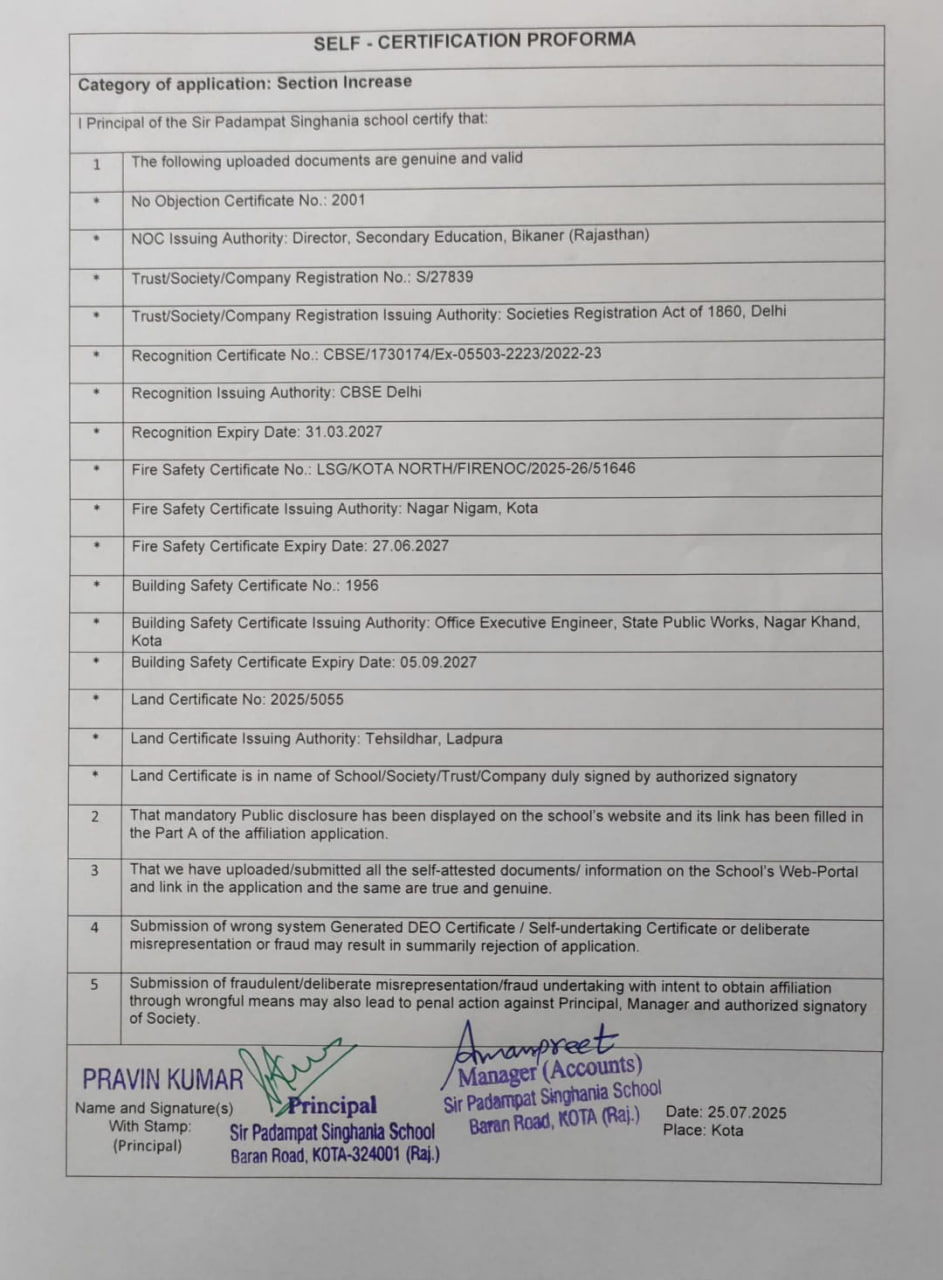 SELF - CERTIFICATION PROFORMA
Category of application: Section Increase
I Principal of the Sir Padampat Singhania school certify that:
1 The following uploaded documents are genuine and valid
* No Objection Certificate No.: 2001
* NOC Issuing Authority: Director, Secondary Education, Bikaner (Rajasthan)
* Trust/Society/Company Registration No.: S/27839
* Trust/Society/Company Registration Issuing Authority: Societies Registration Act of 1860, Delhi
* Recognition Certificate No.: CBSE/1730174/Ex-05503-2223/2022-23
* Recognition Issuing Authority: CBSE Delhi
* Recognition Expiry Date: 31.03.2027
* Fire Safety Certificate No.: LSG/KOTA NORTH/FIRENOC/2025-26/51646
* Fire Safety Certificate Issuing Authority: Nagar Nigam, Kota
* Fire Safety Certificate Expiry Date: 27.06.2027
* Building Safety Certificate No.: 1956
* Building Safety Certificate Issuing Authority: Office Executive Engineer, State Public Works, Nagar Khand,
Kota
* Building Safety Certificate Expiry Date: 05.09.2027
* Land Certificate No: 2025/5055
* Land Certificate Issuing Authority: Tehsildhar, Ladpura
* Land Certificate is in name of School/Society/Trust/Company duly signed by authorized signatory
2 That mandatory Public disclosure has been displayed on the school's website and its link has been filled in
the Part A of the affiliation application.
3 That we have uploaded/submitted all the self-attested documents/ information on the School's Web-Portal
and link in the application and the same are true and genuine.
4 Submission of wrong system Generated DEO Certificate / Self-undertaking Certificate or deliberate
misrepresentation or fraud may result in summarily rejection of application.
5 Submission of fraudulent/deliberate misrepresentation/fraud undertaking with intent to obtain affiliation
through wrongful means may also lead to penal action against Principal, Manager and authorized signatory
of Society.
PRAVIN KUMAR
Name and Signature(s)
With Stamp:
(Principal)
Principal
Sir Padampat Singhania School
Baran Road, KOTA-324001 (Raj.)
Amanpreet
Manager (Accounts)
Sir Padampat Singhania School
Baran Road, KOTA (Raj.)
Date: 25.07.2025
Place: Kota